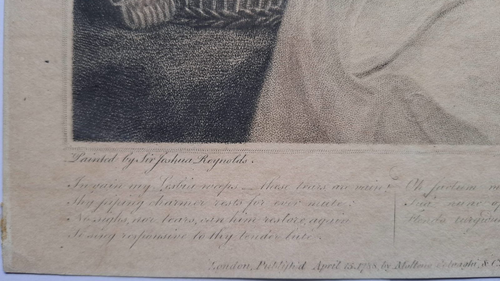 Painted by Sir Joshua Reynolds.
In vain my Lesbia weeps — these tears are vain;
Thy piping charmer rests for ever mute.
No sighs, nor tears, can him restore again
To sing responsive to thy tender lute.
Oh
London, Published April 15. 1788, by Molteno Colnaghi, & C